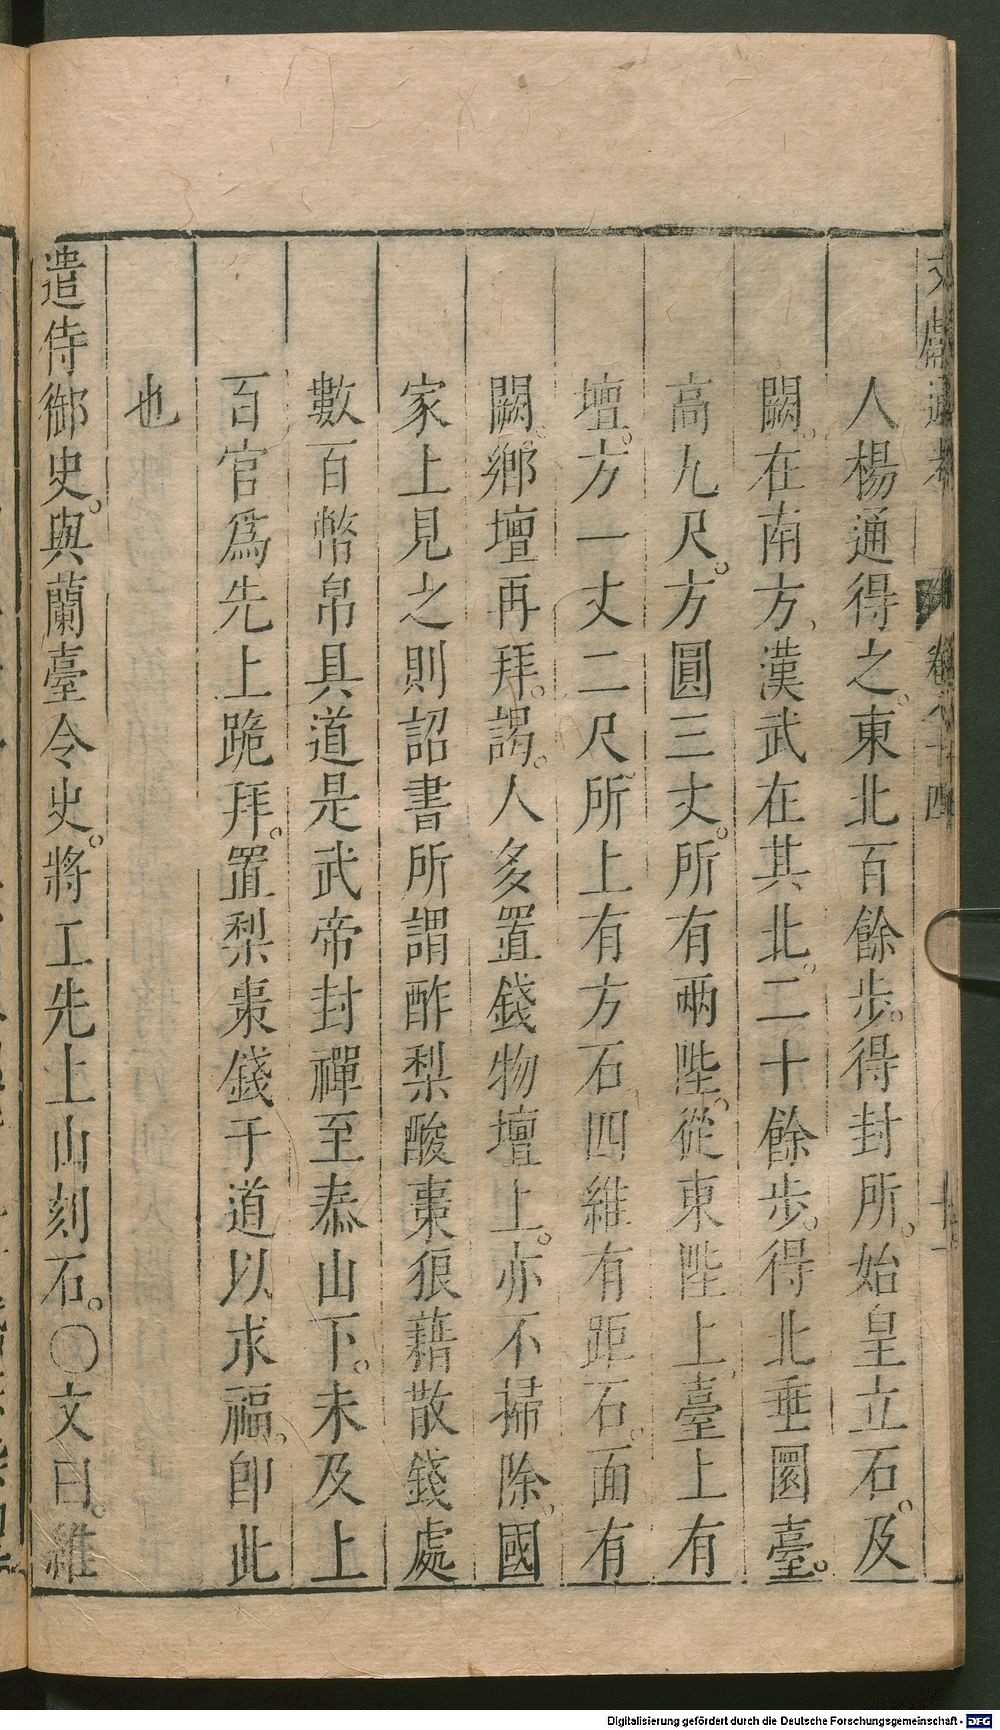 文獻通考 卷八十四 十一
人楊通得之。東北百餘步。得封所。始皇立石。及
闕。在南方、漢武在其北。二十餘步。得北垂圜臺。
高九尺。方圓三丈。所有兩陛。從東陛上臺上有
壇。方一丈二尺所上有方石四維有距石。面有
闕。鄉壇再拜。謁。人多置錢物壇上。亦不掃除。國
家上見之則詔書所謂酢梨酸棗狼藉散錢處
數百幣帛具道是武帝封禪至泰山下。未及上
百官爲先上跪拜。置梨棗錢于道以求福。卽此
也
遣侍御史。與蘭臺令史。將工先上山刻石。〇文曰。維
Digitalisierung gefördert durch die Deutsche Forschungsgemeinschaft - DFG